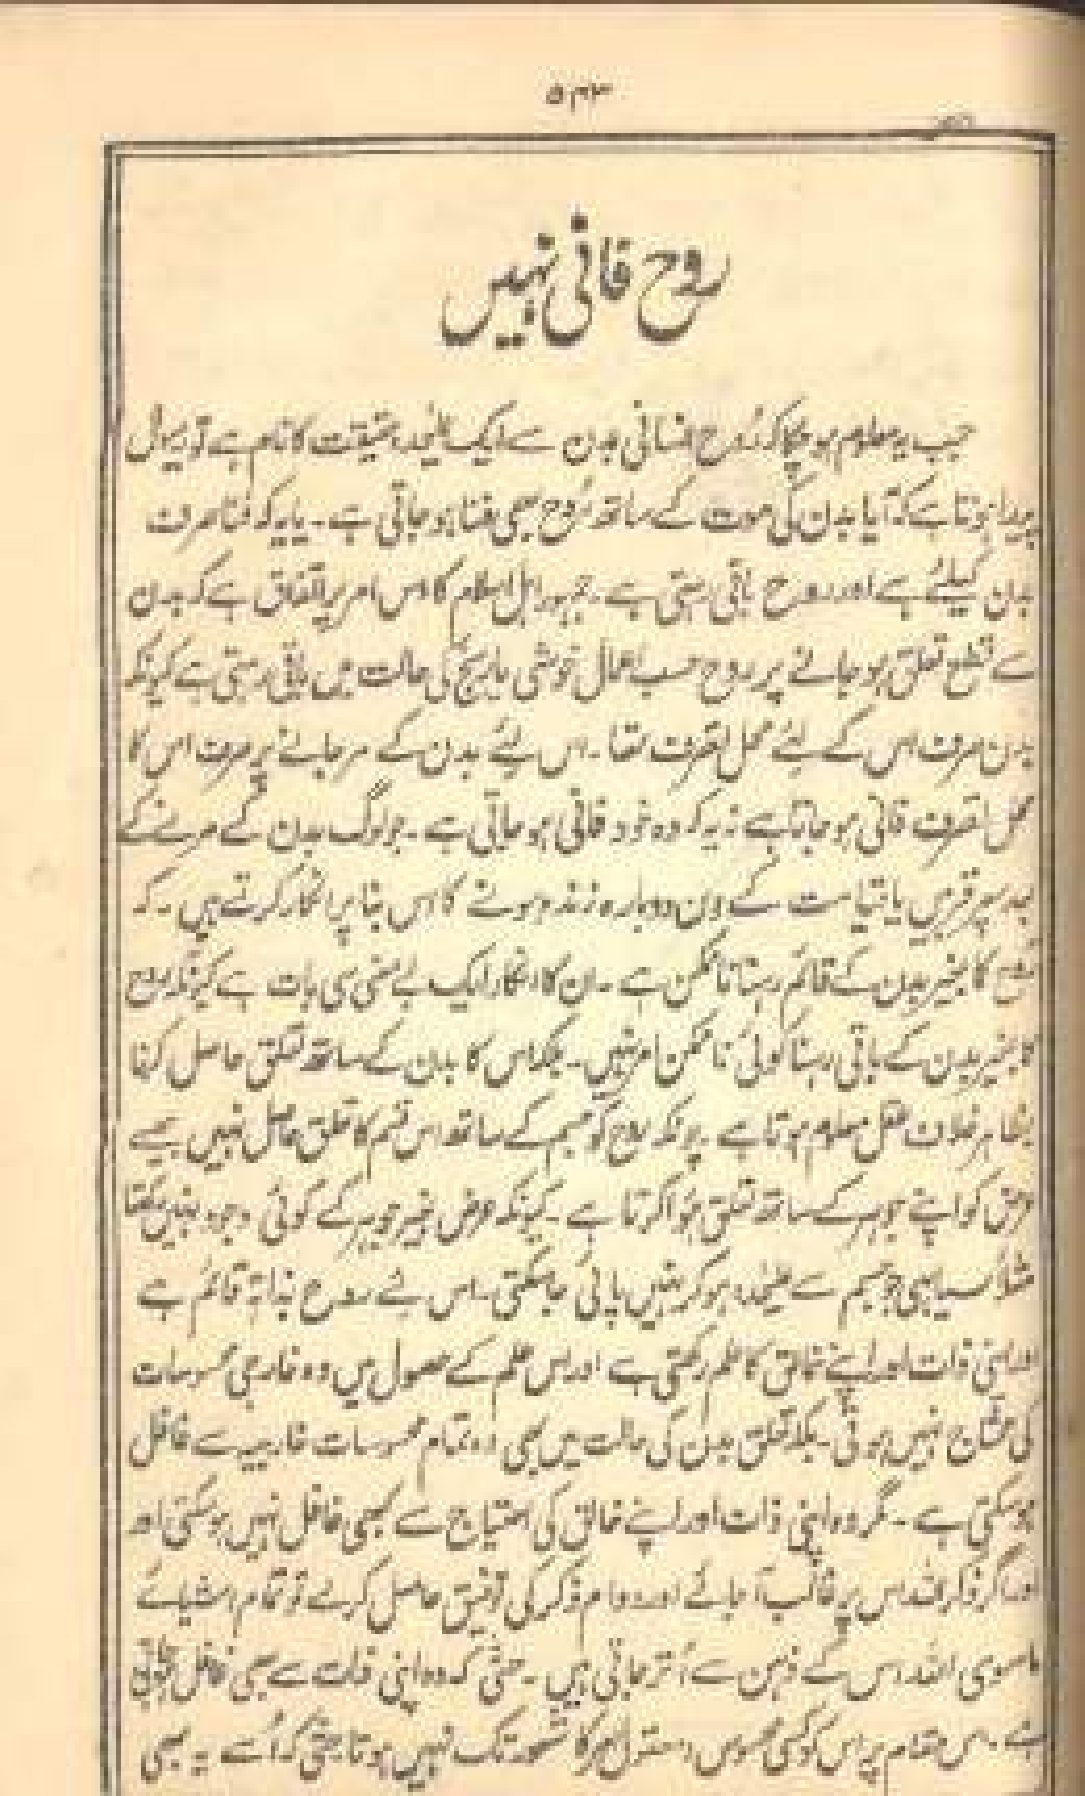 ۵۴۳
روح فانی نہیں
جب یہ معلوم ہو چکا کہ رُوح انسانی بدن سے ایک علیحدہ حقیقت کا نام ہے تو یہ سوال
پیدا ہوتا ہے کہ آیا بدن کی موت کے ساتھ رُوح بھی فنا ہو جاتی ہے ۔ یا یہ کہ فنا صرف
بدن کیلئے ہے اور روح باقی رہتی ہے ۔ جمہور اہل اسلام کا اس امر پر اتفاق ہے کہ بدن
سے قطع تعلق ہو جانے پر روح حسب اعمال خوشی یا رنج کی حالت میں باقی رہتی ہے کیونکہ
بدن صرف اس کے لئے محل تصرف تھا ۔ اس لئے بدن کے مر جانے پر صرف اس کا
محل تصرف فانی ہو جاتا ہے نہ یہ کہ وہ خود فانی ہو جاتی ہے ۔ جو لوگ بدن کے مرنے کے
بعد پھر قبر میں یا قیامت کے دن دوبارہ زندہ ہونے کا اس بنا پر انکار کرتے ہیں ۔ کہ
رُوح کا بغیر بدن کے قائم رہنا ناممکن ہے ۔ ان کا انکار ایک بے معنی سی بات ہے کیونکہ روح
کا بغیر بدن کے باقی رہنا کوئی ناممکن امر نہیں ۔ بلکہ اس کا بدن کے ساتھ تعلق حاصل کرنا
بظاہر خلاف عقل معلوم ہوتا ہے ۔ چونکہ روح کو جسم کے ساتھ اس قسم کا تعلق حاصل نہیں جیسے
عرض کو اپنے جوہر کے ساتھ تعلق ہؤا کرتا ہے ۔ کیونکہ عرض بغیر جوہر کے کوئی وجود نہیں رکھتا
مثلاً سیاہی جو جسم سے علیحدہ ہو کر نہیں پائی جا سکتی ۔ اس لئے روح بذاتہٖ قائم ہے
اور اپنی ذات اور اپنے خالق کا علم رکھتی ہے اور اس علم کے حصول میں وہ خارجی محسوسات
کی محتاج نہیں ہوتی ۔ بلکہ تعلق بدن کی حالت میں بھی وہ تمام محسوسات خارجیہ سے غافل
ہو سکتی ہے ۔ مگر وہ اپنی ذات اور اپنے خالق کی احتیاج سے کبھی غافل نہیں ہو سکتی اور
اور اگر ذکر اللہ اس پر غالب آ جائے اور دوام ذکر کی توفیق حاصل کرلے تو تمام اشیائے
ماسوی اللہ اس کے ذہن سے اُتر جاتی ہیں ۔ حتّٰی کہ وہ اپنی ذات سے بھی غافل ہو جاتی
ہے ۔ اس مقام پر اس کو کسی محسوس و معقول امر کا شعور تک نہیں ہوتا حتّٰی کہ اُسے یہ بھی